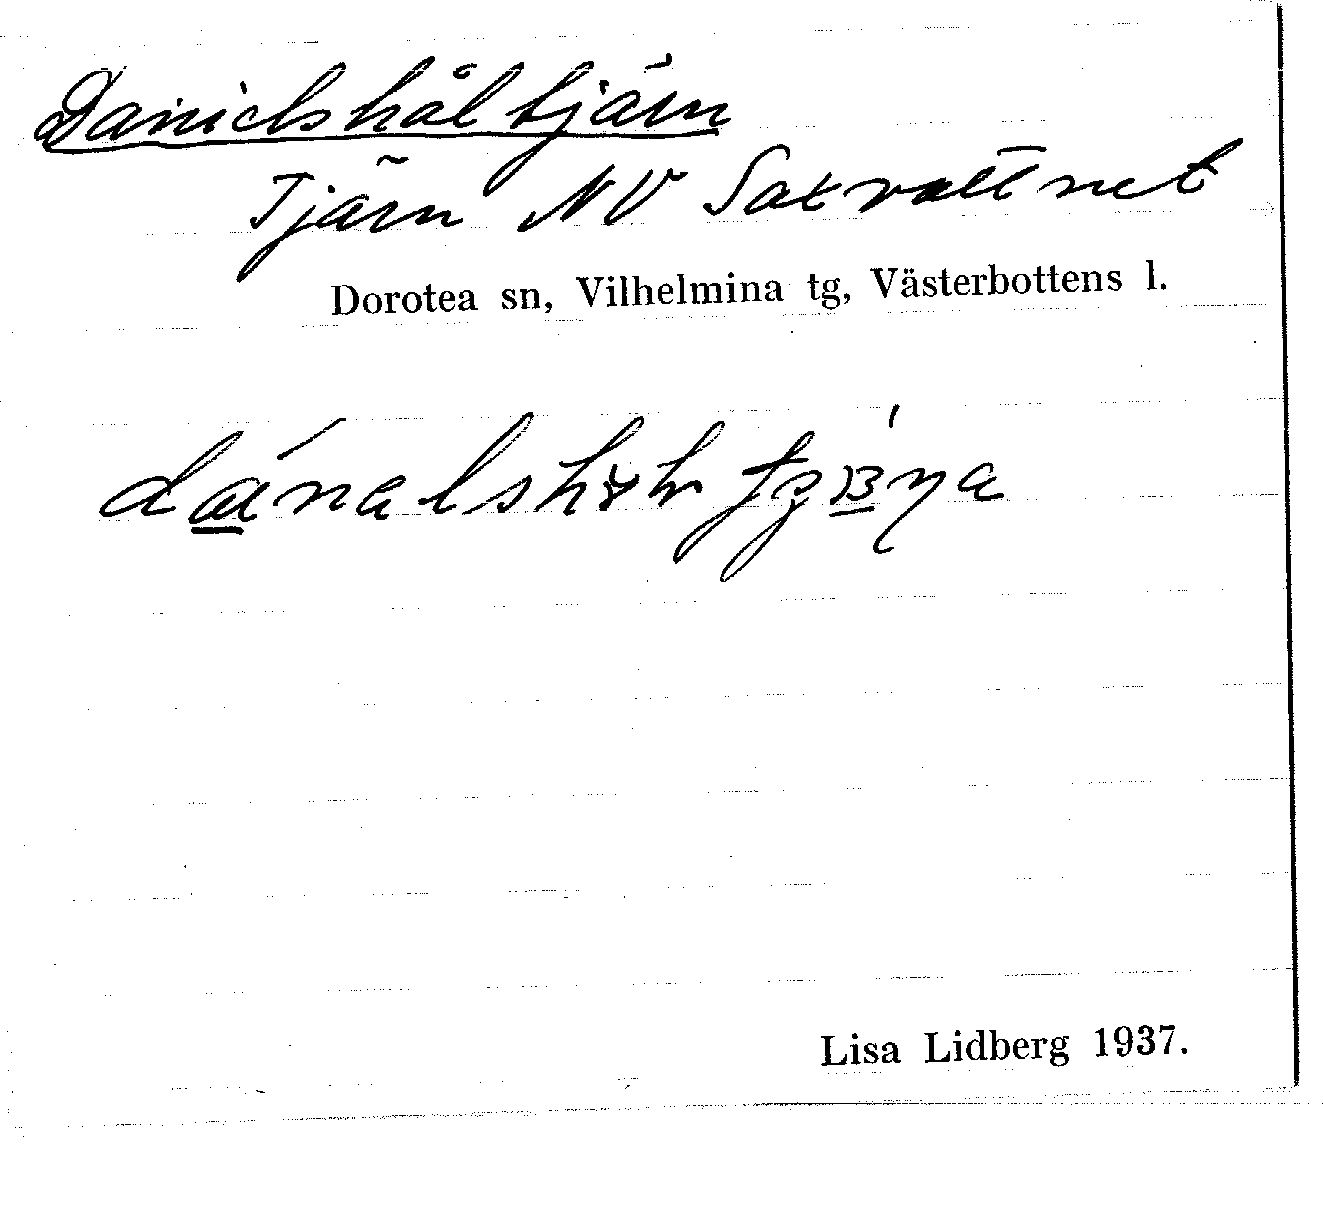 Danielshåltjärn
Tjärn NV Satvattnet
Dorotea sn, Vilhelmina tg, Västerbottens l.
Lisa Lidberg 1937.